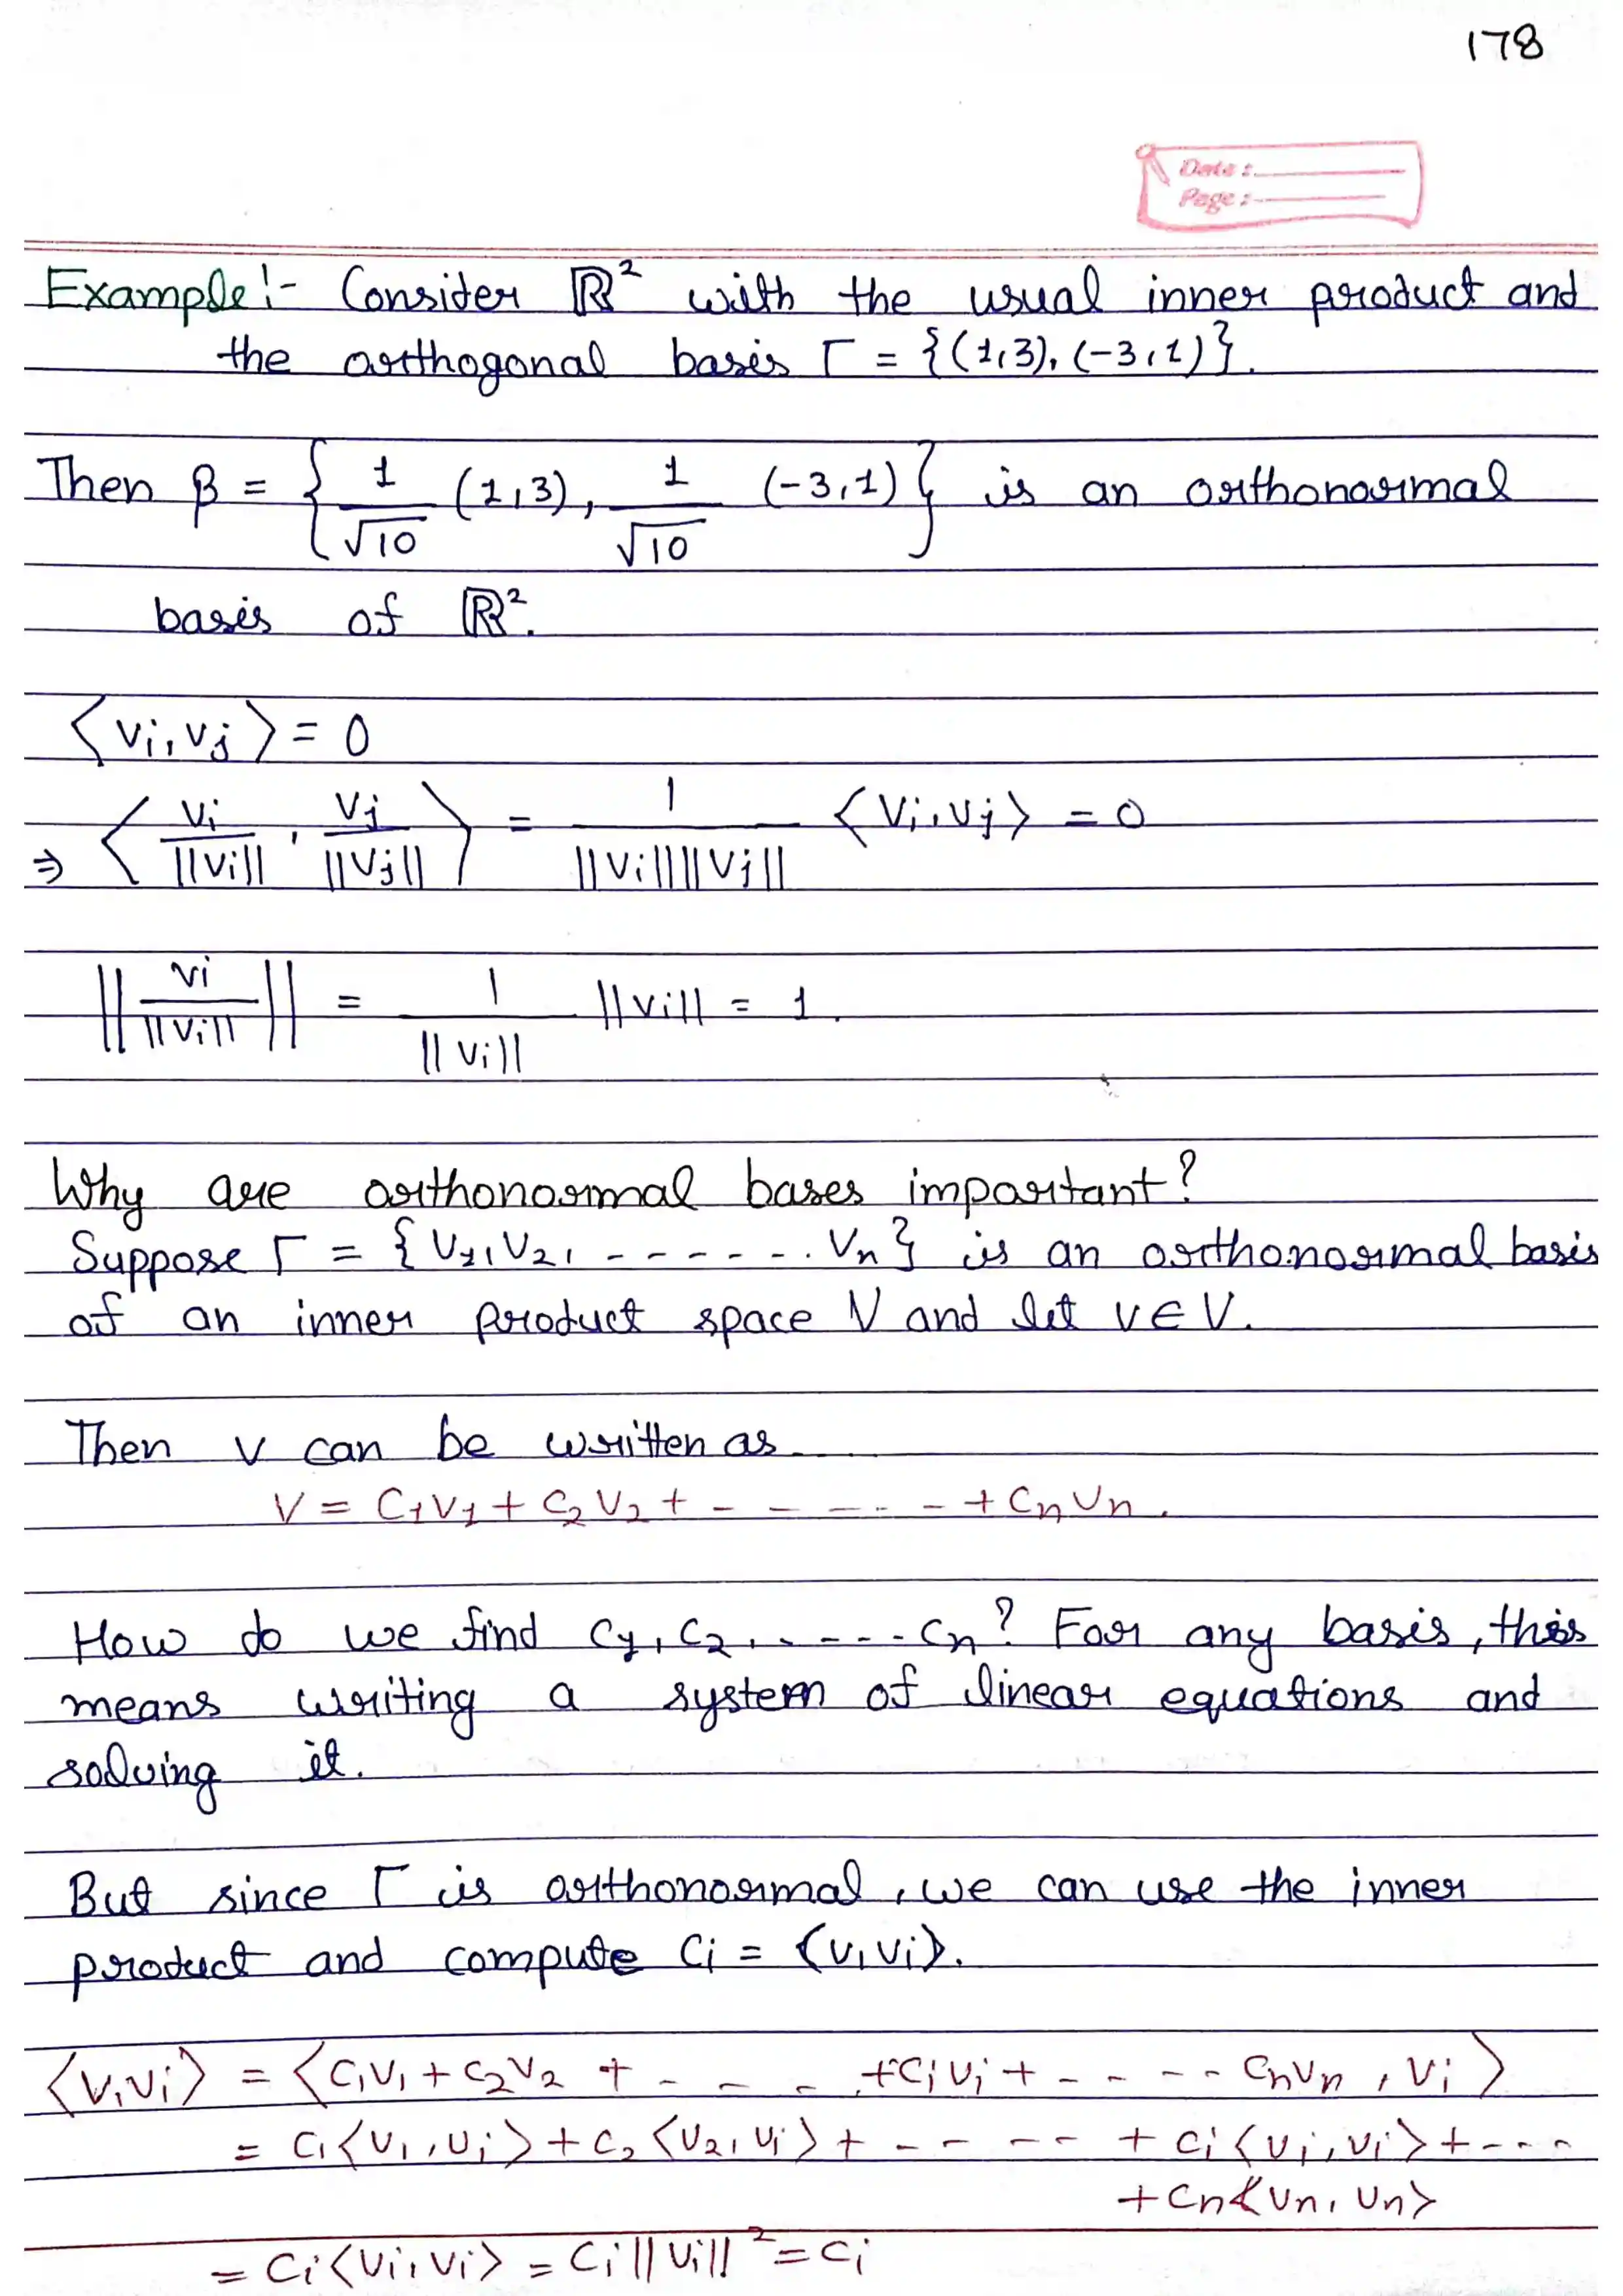 178
Date :
Page :
Example :- Consider ℝ² with the usual inner product and
the orthogonal basis Γ = {(1,3), (-3,1)}.
Then β = { 1/√10 (1,3), 1/√10 (-3,1) } is an orthonormal
basis of ℝ².
⟨vi, vj⟩ = 0
⇒ ⟨ vi/||vi|| , vj/||vj|| ⟩ = 1/(||vi|| ||vj||) ⟨vi, vj⟩ = 0
|| vi/||vi|| || = 1/||vi|| ||vi|| = 1.
Why are orthonormal bases important?
Suppose Γ = {v1, v2, ------. vn} is an orthonormal basis
of an inner product space V and let v ∈ V.
Then v can be written as
V = c1v1 + c2v2 + - - - - - + cnvn.
How do we find c1, c2, ----- cn? For any basis, this
means writing a system of linear equations and
solving it.
But since Γ is orthonormal, we can use the inner
product and compute ci = ⟨v, vi⟩.
⟨v, vi⟩ = ⟨c1v1 + c2v2 + - - - + civi + - - - - cnvn , vi⟩
= c1⟨v1, vi⟩ + c2⟨v2, vi⟩ + - - - - + ci⟨vi, vi⟩ + - - -
+ cn⟨vn, vn⟩
= ci⟨vi, vi⟩ = ci||vi||² = ci